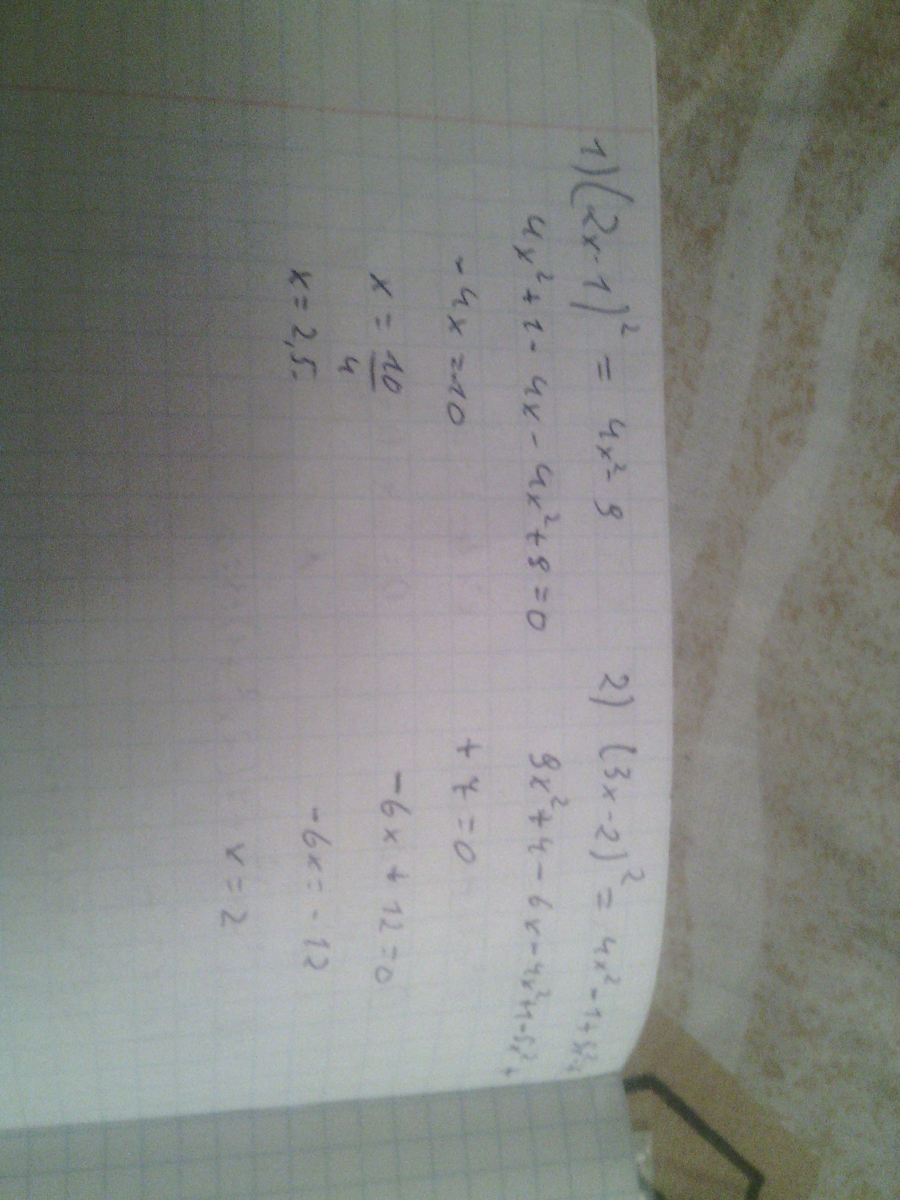 1) (2x-1)² = 4x² - 9
4x² + 1 - 4x - 4x² + 9 = 0
-4x = -10
x = 10/4
x = 2,5.
2) (3x-2)² = 4x² - 1 + 5x² -
9x² + 4 - 6x - 4x² + 1 - 5x² +
+ 7 = 0
-6x + 12 = 0
-6x = -12
x = 2